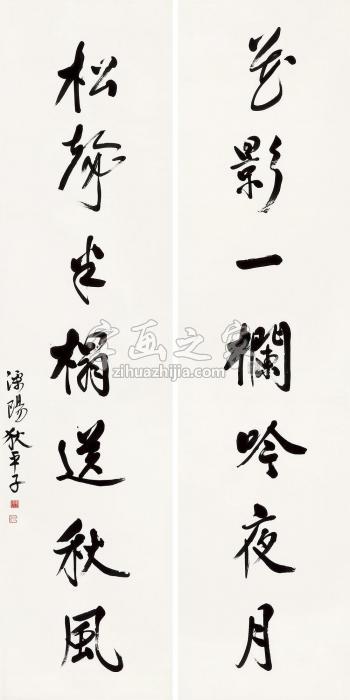 花影一欄吟夜月
松聲半榻送秋風
溧陽狄平子
字画之家
zihuazhijia.com